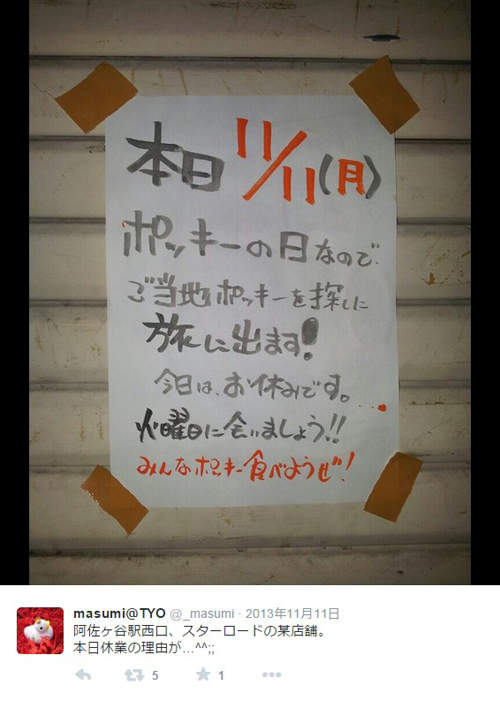 本日 11/11(月)
ポッキーの日なので
ご当地ポッキーを探しに
旅に出ます!
今日は、お休みです。
火曜日に会いましょう!!
みんなポッキー食べようぜ!
masumi@TYO @_masumi · 2013年11月11日
阿佐ヶ谷駅西口、スターロードの某店舗。
本日休業の理由が…^^;;
5 1